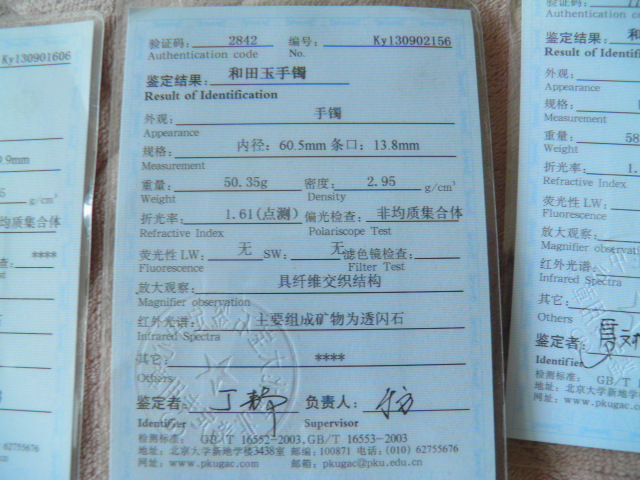 Ky130901606
0.9mm
g/cm³
均质集合体
****
62755676
验证码: 2842 编号: Ky130902156
Authentication code No.
鉴定结果: 和田玉手镯
Result of Identification
外观: 手镯
Appearance
规格: 内径: 60.5mm 条口: 13.8mm
Measurement
重量: 50.35g 密度: 2.95 g/cm³
Weight Density
折光率: 1.61(点测) 偏光检查: 非均质集合体
Refractive Index Polariscope Test
荧光性 LW: 无 SW: 无 滤色镜检查:
Fluorescence Filter Test
放大观察: 具纤维交织结构
Magnifier observation
红外光谱: 主要组成矿物为透闪石
Infrared Spectra
其它: ****
Others
鉴定者: 丁静 负责人:
Identifier Supervisor
检测标准: GB/T 16552-2003,GB/T 16553-2003
地址: 北京大学新地学楼3438室 邮编: 100871 电话: (010) 62755676
网址: www.pkugac.com 邮箱: pkugac@pku.edu.cn
验证码:
Authentication code
鉴定结果: 和
Result of Identific
外观:
Appearance
规格:
Measurement
重量: 58
Weight
折光率: 1.
Refractive Index
荧光性 LW:
Fluorescence
放大观察:
Magnifier observation
红外光谱:
Infrared Spectra
其它:
Others
鉴定者:
Identifier
检测标准: GB/T
地址: 北京大学新地学
网址: www.pkugac.c